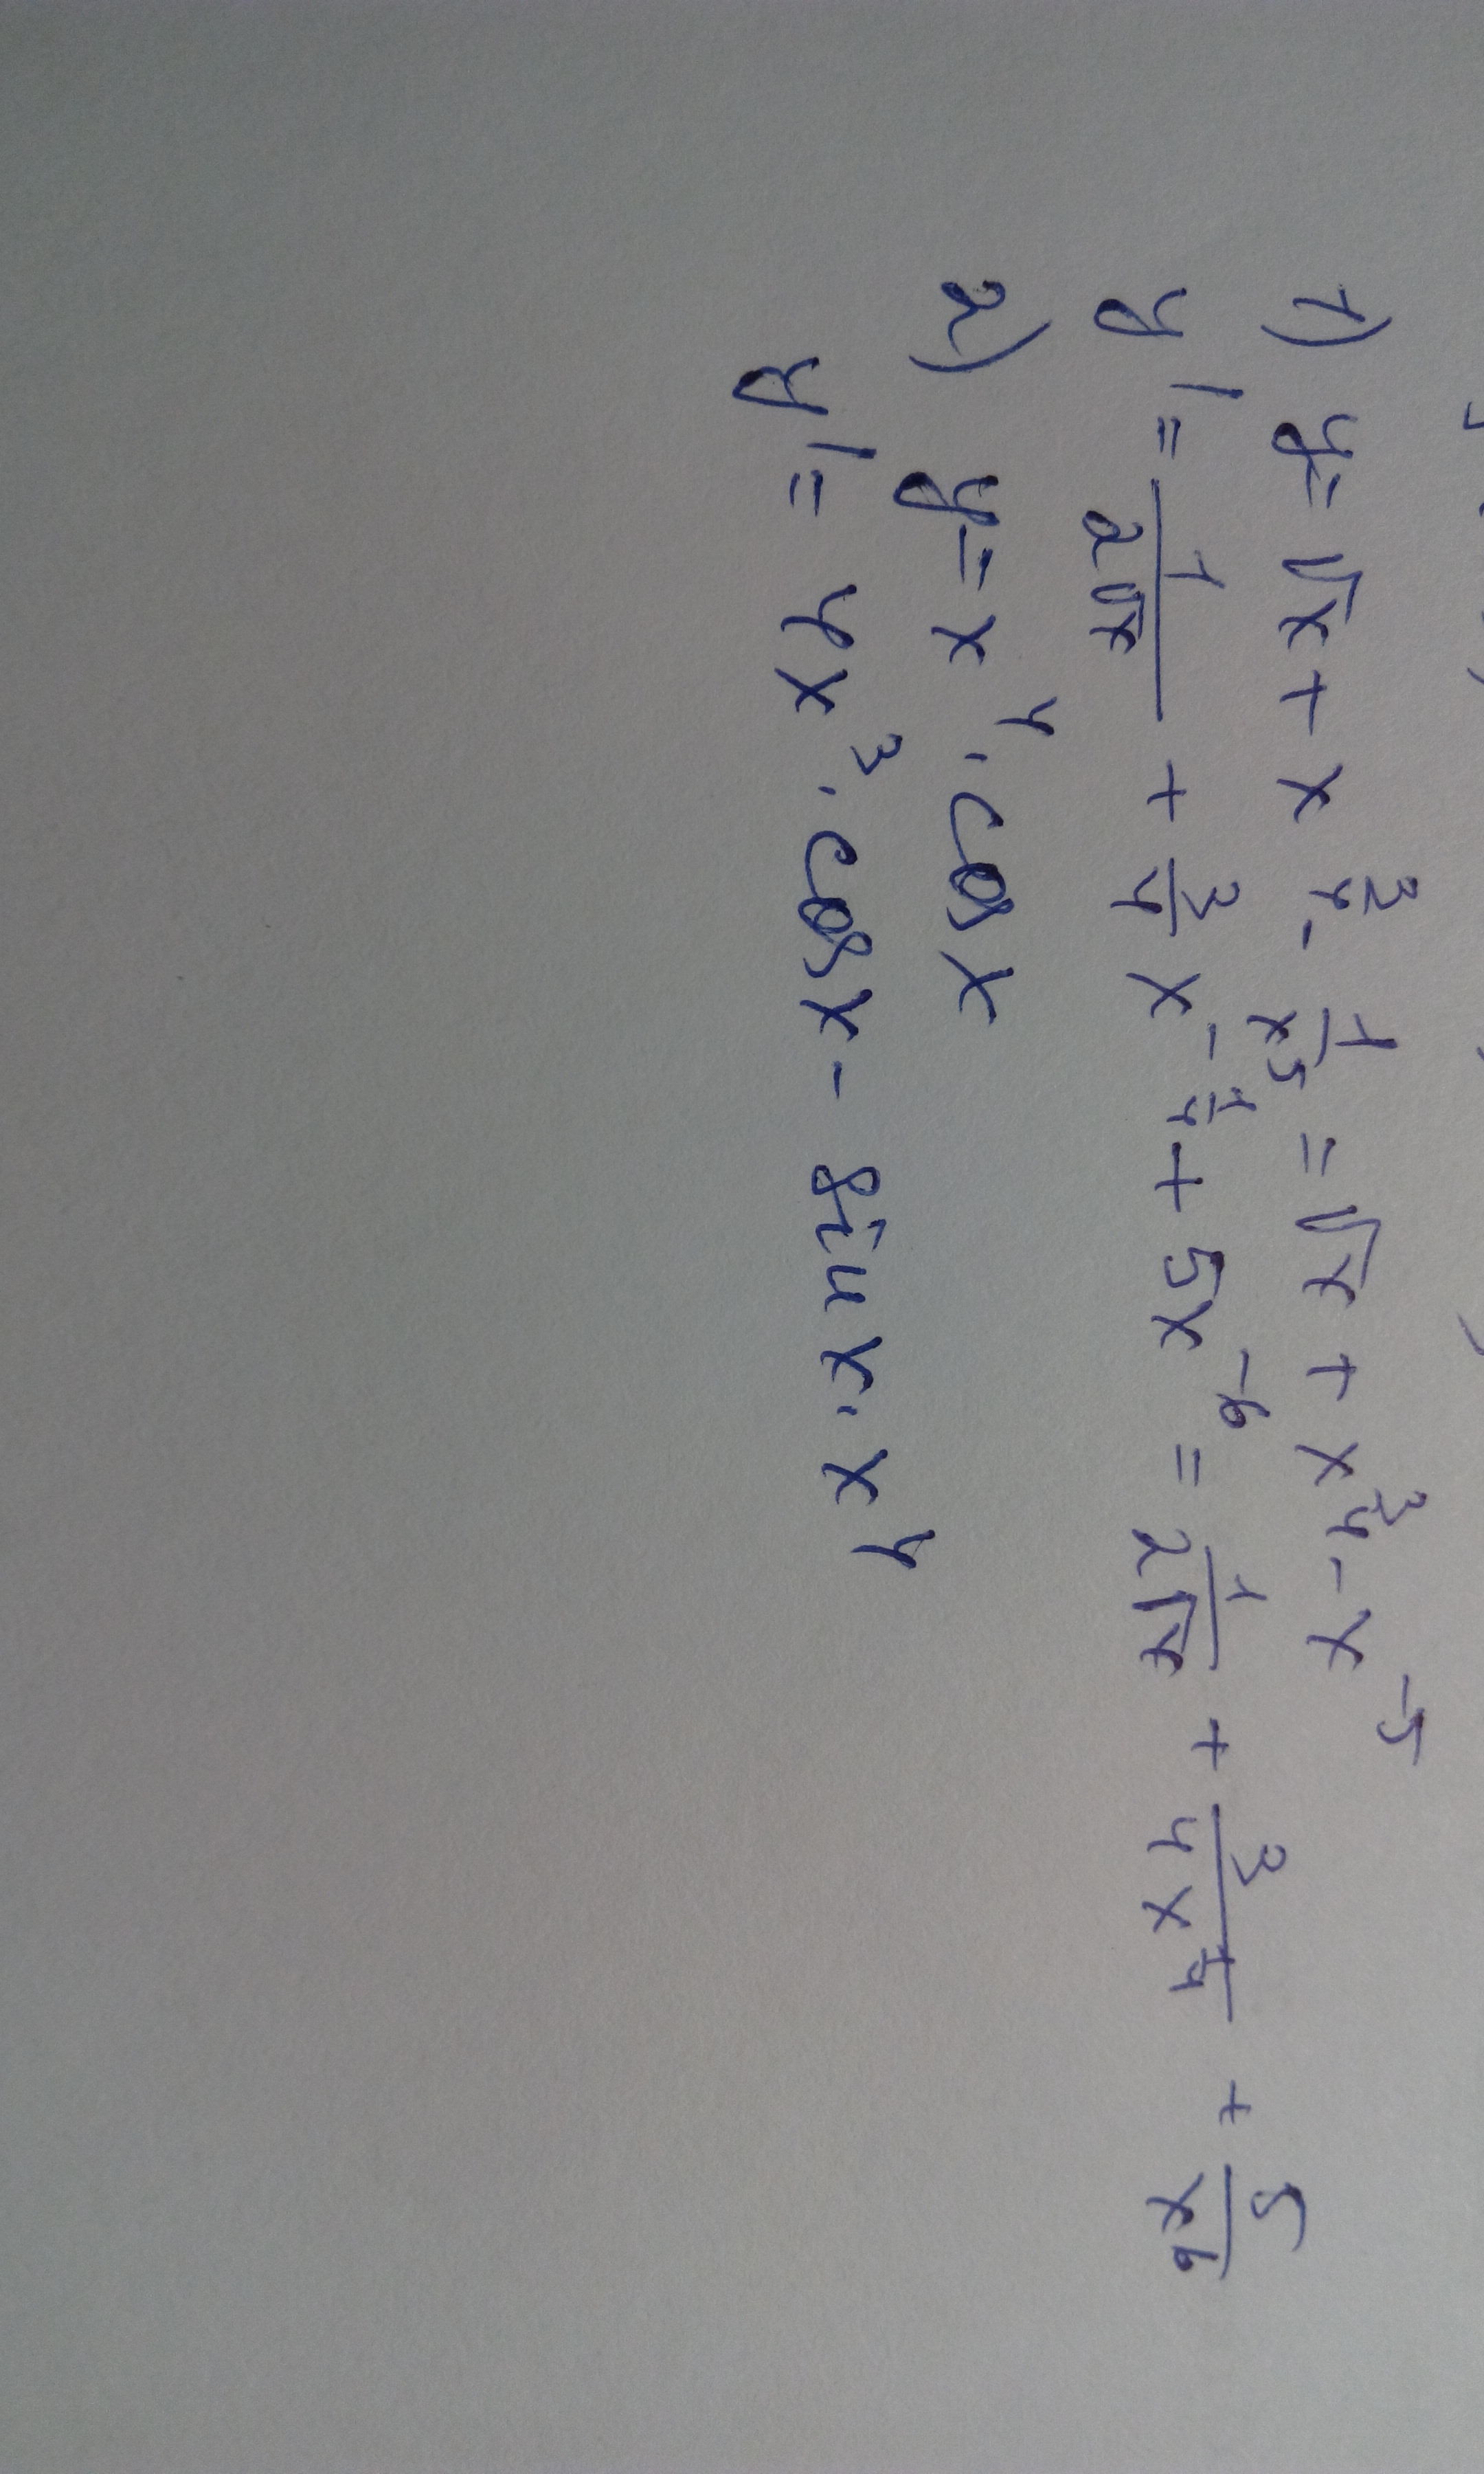 1) y = √x + x^(3/4) - 1/x^5 = √x + x^(3/4) - x^(-5)
y' = 1/(2√x) + 3/4 x^(-1/4) + 5x^(-6) = 1/(2√x) + 3/(4x^(1/4)) + 5/x^6
2) y = x^4 · cos x
y' = 4x^3 · cos x - sin x · x^4